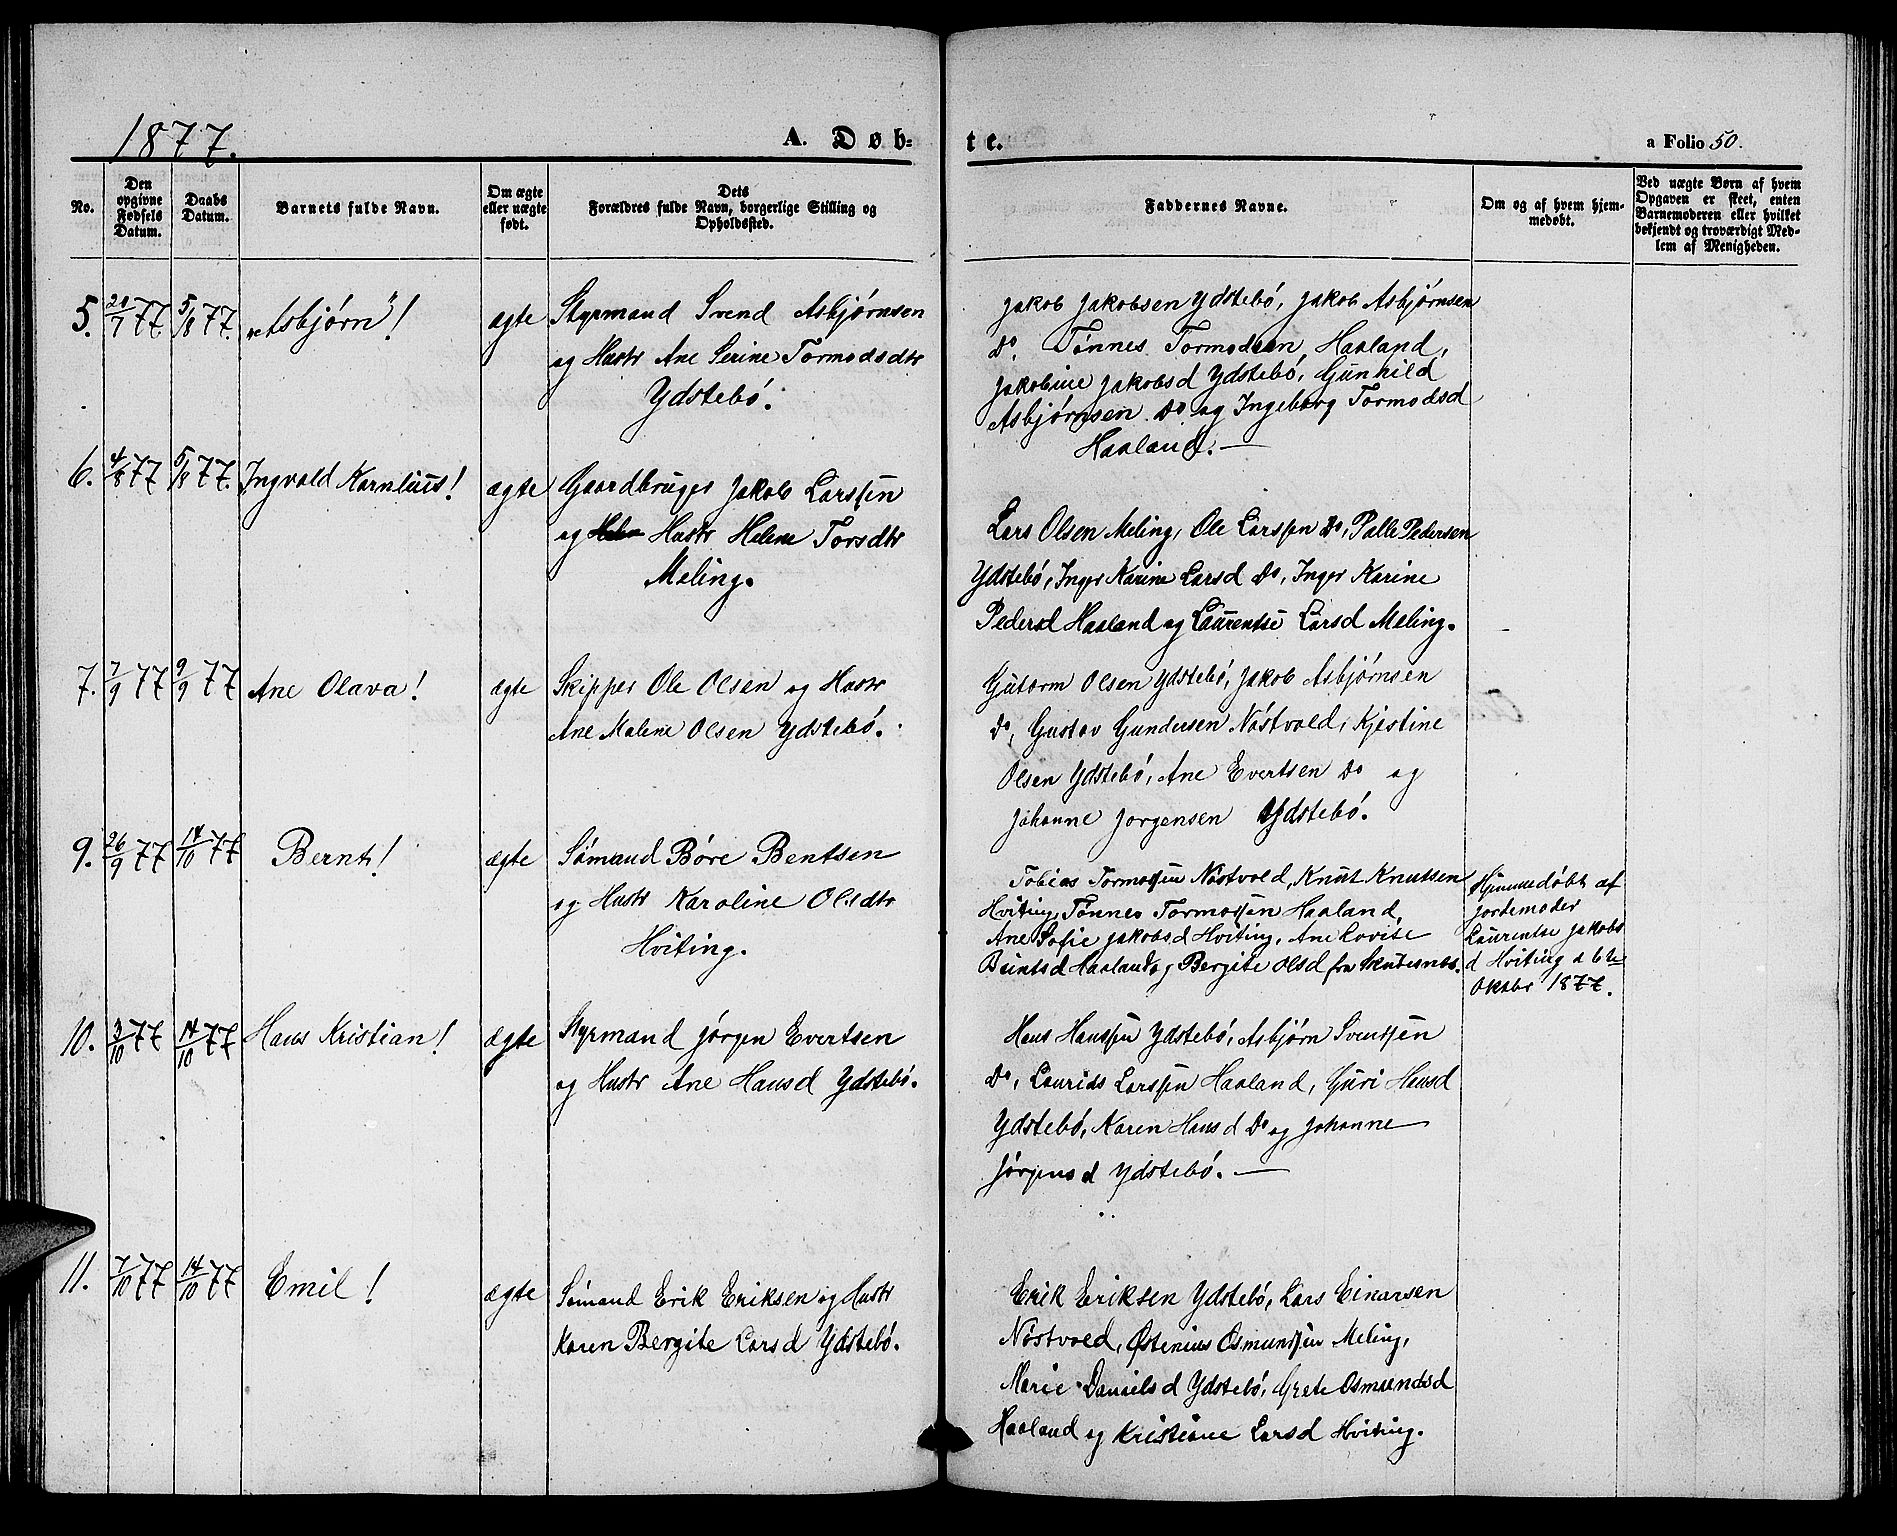 1877.
A. Døb-
te.
a Folio 50.
No.
Den opgivne Fødsels Datum.
Daabs Datum.
Barnets fulde Navn.
Om ægte eller uægte født.
Dets
Forældres fulde Navn, borgerlige Stilling og
Opholdssted.
Faddernes Navne.
Om og af hvem hjem-
medøbt.
Ved uægte Børn af hvem
Opgaven er skeet, enten
Barnemoderen eller hvilket
bekjendt og troværdigt Med-
lem af Menigheden.
5. 20/7 77 5/8 77. "Asbjørn"! ægte Styrmand Svend Asbjørnsen
og Hustr Ane Serine Tormodsdtr
Ydstebö.
Jakob Jakobsen Ydstebö, Jakob Asbjørnsen
Do. Tönnes Tormodsen Haaland,
Jakobine Jakobsd Ydstebö, Gunhild
Asbjørnsen Do og Ingeborg Tormodsd
Haaland. —
6. 4/8 77 5/8 77. Ingvald Kornlius! ægte Gaardbruger Jakob Larssen
og Hustr Helene Torsdtr
Meling.
Lars Olsen Meling, Ole Larssen Do, Palle Pedersen
Ydstebö, Inger Karine Larsd Do, Inger Karine
Pedersd Haaland og Laurentse Larsd Meling.
7. 7/9 77 9/9 77 Ane Olava! ægte Skipper Ole Olsen og Hustr
Ane Malene Olsen Ydstebö.
Gutorm Olsen Ydstebö, Jakob Asbjørnsen
Do, Gustav Gundersen Nöstvold, Kjestine
Olsen Ydstebö, Ane Evertsen Do og
Johanne Jorgensen Ydstebö.
9. 26/9 77 14/10 77 Bernt! ægte Sömand Böre Bentsen
og Hustr Karoline Olsdtr
Hviting.
Tobias Tormossen Nöstvold, Knut Knutsen
Hviting, Tönnes Tormossen Haaland,
Ane Sofie Jakobsd Hviting, Ane Lovise
Bentsd Haaland og Bergite Olsd fra Skudesnes.
Hjemmedöbt af
Jordemoder
Laurentse Jakobs
d Hviting d 6te
Oktobr 1877.
10. 3/10 77 14/10 77 Hans Kristian! ægte Styrmand Jörgen Evertsen
og Hustr Ane Hansd Ydstebö.
Hans Hanssen Ydstebö, Asbjörn Svenssen
Do, Laurids Larssen Haaland, Guri Hansd
Ydstebö, Karen Hansd Do og Johanne
Jörgensd Ydstebö. —
11. 7/10 77 14/10 77 Emil! ægte Sömand Erik Eriksen og Hustr
Karen Bergite Larsd Ydstebö.
Erik Eriksen Ydstebö, Lars Einarsen
Nöstvold, Østenius Osmunssen Meling,
Marie Danielsd Ydstebö, Grete Osmundsd
Haaland og Kristiane Larsd Hviting.